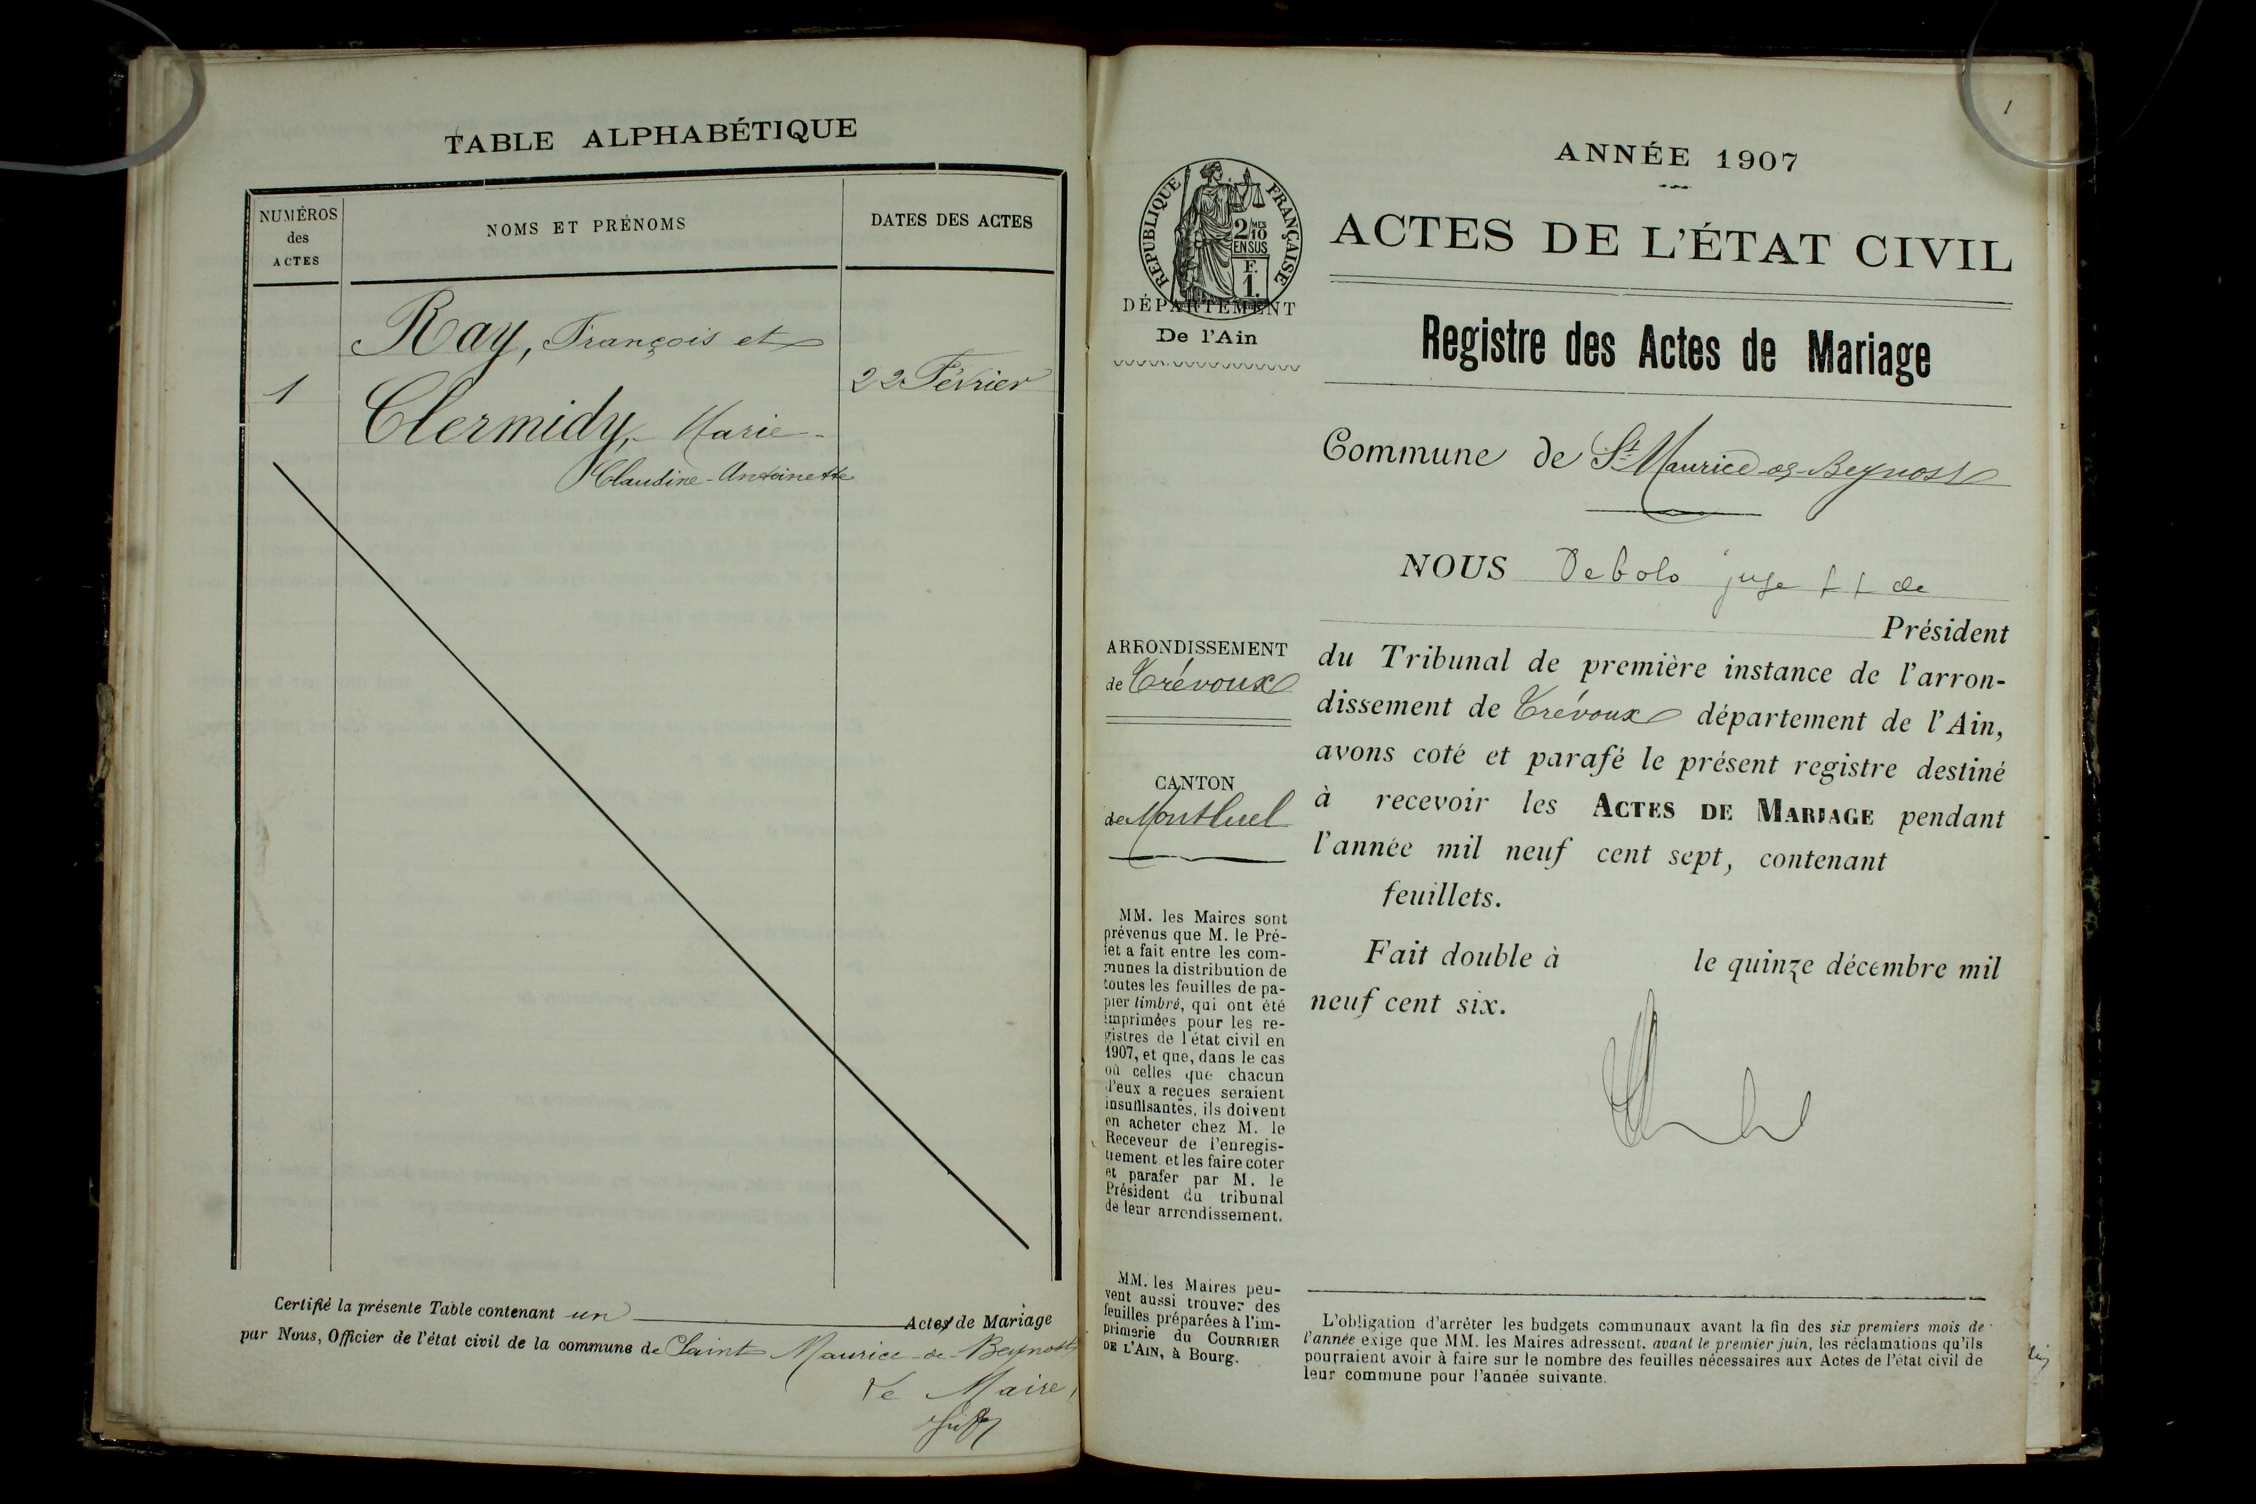 TABLE ALPHABÉTIQUE
NUMÉROS
des
ACTES
NOMS ET PRÉNOMS
DATES DES ACTES
Ray, François et
1
22 Février
Clermidy, Marie-
Claudine-Antoinette
Certifié la présente Table contenant un Actes de Mariage
par Nous, Officier de l'état civil de la commune de Saint Maurice-de-Beynost
Le Maire,
1
ANNÉE 1907
RÉPUBLIQUE FRANÇAISE
2/10 MES
EN SUS
F.
1.
DÉPARTEMENT
De l'Ain
ACTES DE L'ÉTAT CIVIL
Registre des Actes de Mariage
Commune de St Maurice-de-Beynost
NOUS Debolo juge
Président
du Tribunal de première instance de l'arron-
dissement de Trévoux département de l'Ain,
avons coté et parafé le présent registre destiné
à recevoir les ACTES DE MARIAGE pendant
l'année mil neuf cent sept, contenant
feuillets.
Fait double à le quinze décembre mil
neuf cent six.
ARRONDISSEMENT
de Trévoux
CANTON
de Montluel
MM. les Maires sont
prévenus que M. le Pré-
fet a fait entre les com-
munes la distribution de
toutes les feuilles de pa-
pier timbré, qui ont été
imprimées pour les re-
gistres de l'état civil en
1907, et que, dans le cas
où celles que chacun
d'eux a reçues seraient
insuffisantes, ils doivent
en acheter chez M. le
Receveur de l'enregis-
trement et les faire coter
et parafer par M. le
Président du tribunal
de leur arrondissement.
MM. les Maires peu-
vent aussi trouver des
feuilles préparées à l'im-
primerie du COURRIER
DE L'AIN, à Bourg.
L'obligation d'arrêter les budgets communaux avant la fin des six premiers mois de
l'année exige que MM. les Maires adressent, avant le premier juin, les réclamations qu'ils
pourraient avoir à faire sur le nombre des feuilles nécessaires aux Actes de l'état civil de
leur commune pour l'année suivante.